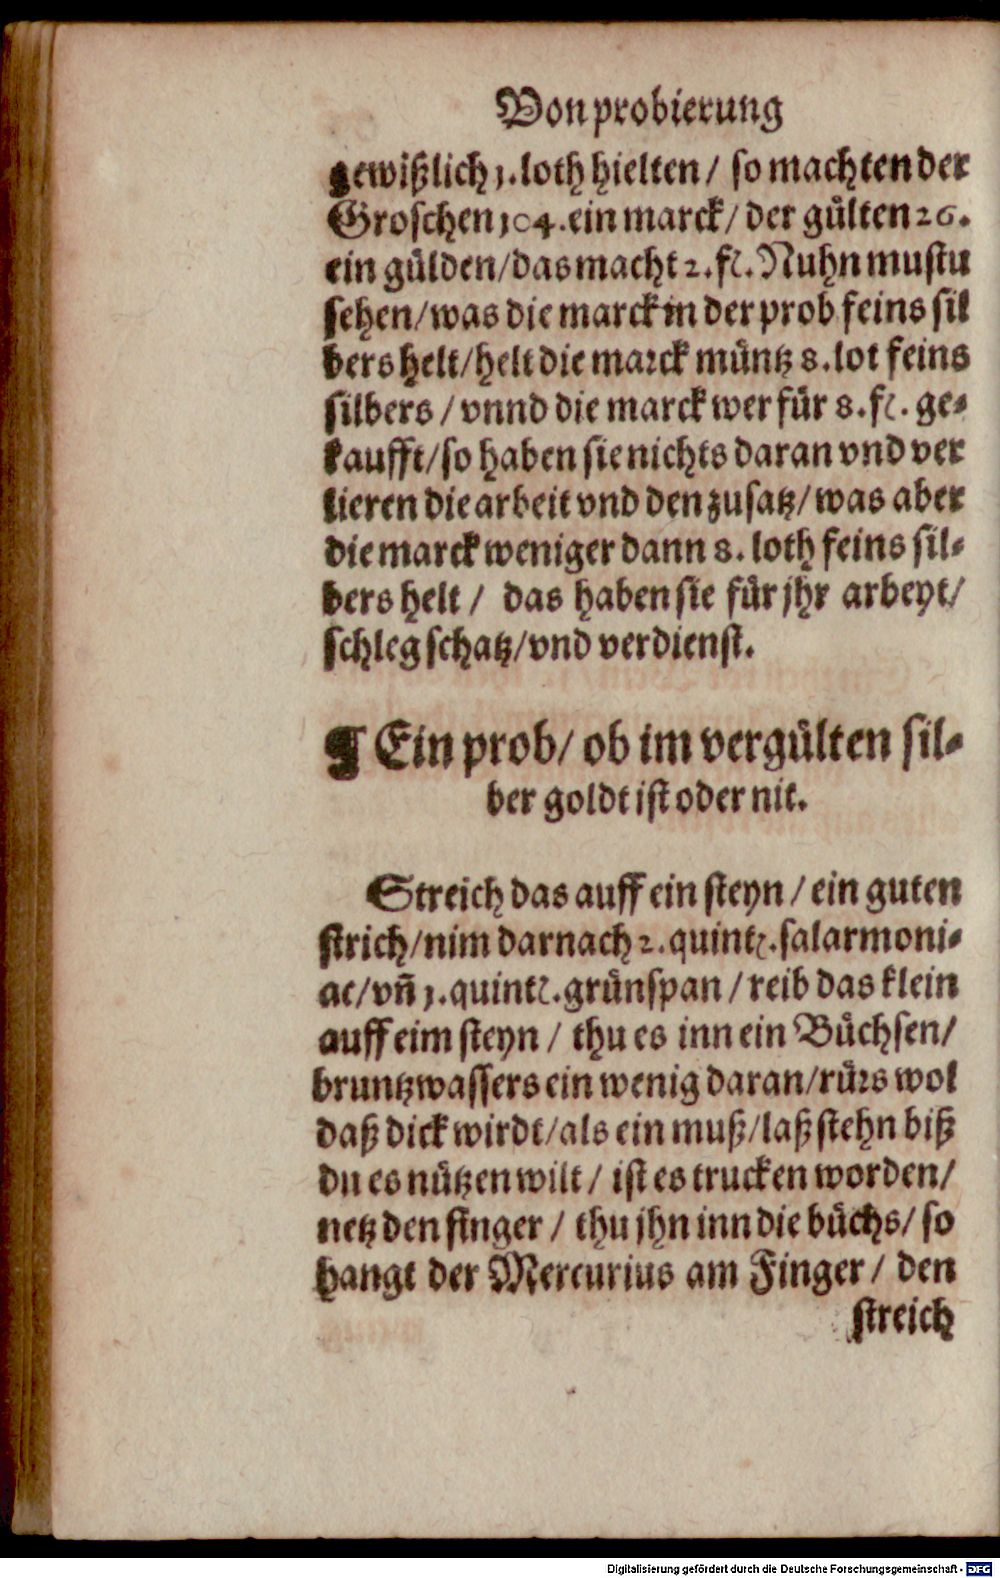 Von probierung
gewißlich 1. loth hielten / so machten der
Groschen 104. ein marck / der gülten 26.
ein gülden / das macht 2. fl. Nuhn mustu
sehen / was die marck in der prob feins sil
bers helt / helt die marck müntz 8. lot feins
silbers / vnnd die marck wer für 8. fl. ge-
kaufft / so haben sie nichts daran vnd ver
lieren die arbeit vnd den zusatz / was aber
die marck weniger dann 8. loth feins sil-
bers helt / das haben sie für jhr arbeyt /
schlegschatz / vnd verdienst.
¶ Ein prob / ob im vergülten sil-
ber goldt ist oder nit.
Streich das auff ein steyn / ein guten
strich / nim darnach 2. quintl. salarmoni-
ac / vñ 1. quintl. grünspan / reib das klein
auff eim steyn / thu es inn ein Büchsen /
bruntzwassers ein wenig daran / rürs wol
daß dick wirdt / als ein muß / laß stehn biß
du es nützen wilt / ist es trucken worden /
netz den finger / thu jhn inn die büchs / so
hangt der Mercurius am Finger / den
streich
Digitalisierung gefördert durch die Deutsche Forschungsgemeinschaft - DFG